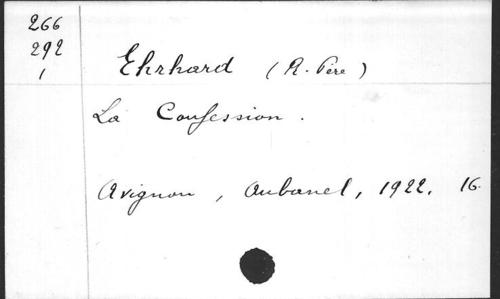 266
292
1
Ehrhard (R. Père)
La Confession.
Avignon, Aubanel, 1922. 16.